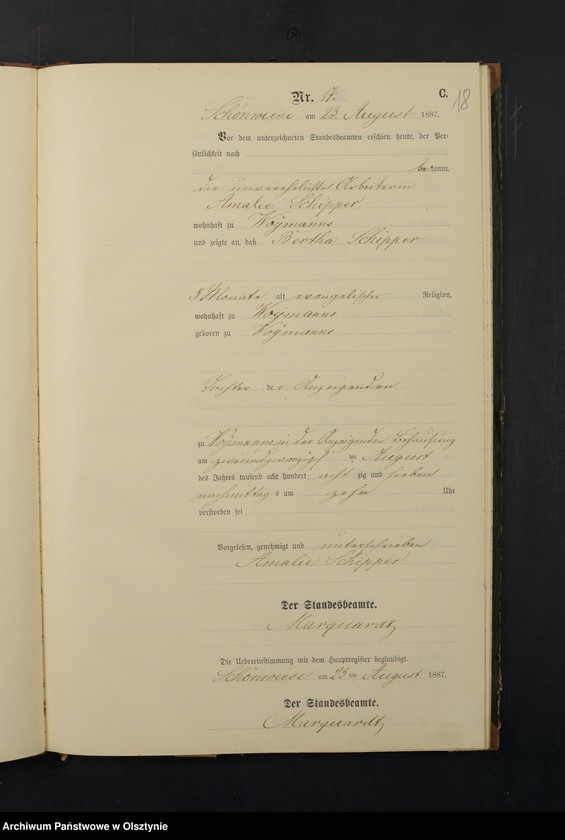 Nr. 17.
C.
18
Schönwiese am 23. August 1887.
Vor dem unterzeichneten Standesbeamten erschien heute, der Per-
sönlichkeit nach
bekannt,
die unverehelichte Arbeiterin
Amalie Schipper
wohnhaft zu Woymanns
und zeigte an, daß Bertha Schipper
Monate alt evangelischer Religion,
wohnhaft zu Woymanns
geboren zu Woymanns
Tochter der Anzeigenden
zu Woymanns in der Anzeigenden Behausung
am zweiundzwanzigsten August
des Jahres tausend acht hundert acht zig und sieben
nachmittags um zehn Uhr
verstorben sei
Vorgelesen, genehmigt und unterschrieben
Amalie Schipper
Der Standesbeamte.
Marquardt
Die Uebereinstimmung mit dem Hauptregister beglaubigt.
Schönwiese am 23 ten August 1887.
Der Standesbeamte.
Marquardt
Archiwum Państwowe w Olsztynie